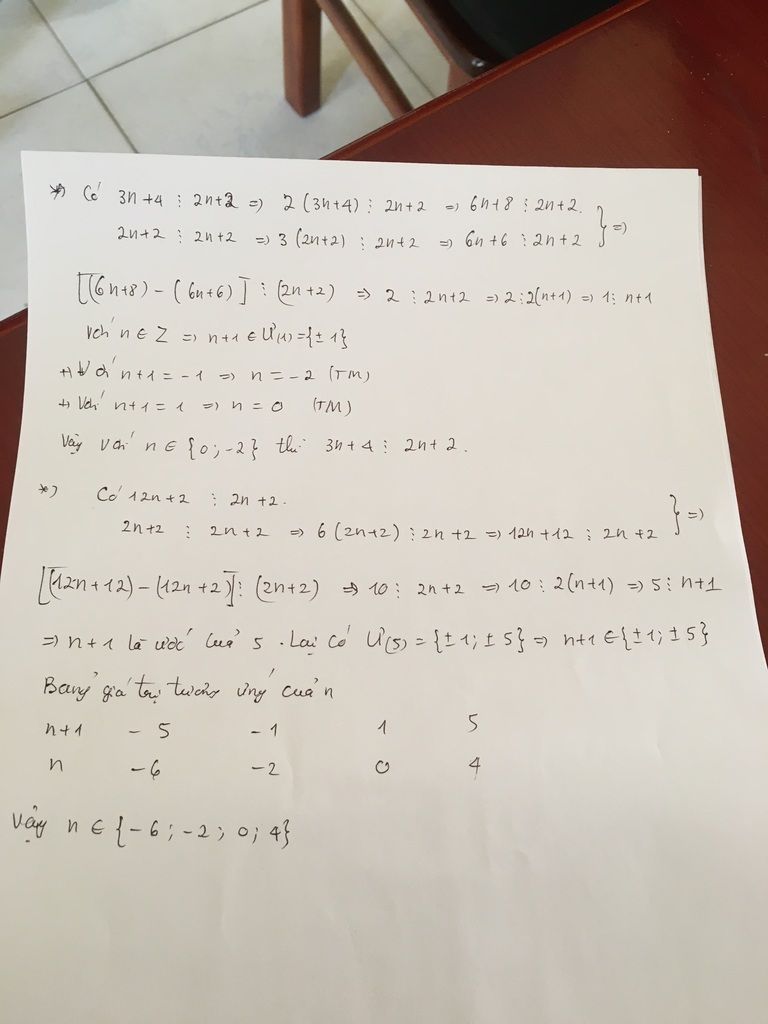 *) Có 3n+4 ⋮ 2n+2 => 2(3n+4) ⋮ 2n+2 => 6n+8 ⋮ 2n+2.
2n+2 ⋮ 2n+2 => 3(2n+2) ⋮ 2n+2 => 6n+6 ⋮ 2n+2 } =>
[(6n+8) - (6n+6)] ⋮ (2n+2) => 2 ⋮ 2n+2 => 2 ⋮ 2(n+1) => 1 ⋮ n+1
Với n ∈ Z => n+1 ∈ Ư(1) = {±1}
+) Với n+1 = -1 => n = -2 (TM)
+) Với n+1 = 1 => n = 0 (TM)
Vậy với n ∈ {0; -2} thì 3n+4 ⋮ 2n+2.
*) Có 12n+2 ⋮ 2n+2.
2n+2 ⋮ 2n+2 => 6(2n+2) ⋮ 2n+2 => 12n+12 ⋮ 2n+2 } =>
[(12n+12) - (12n+2)] ⋮ (2n+2) => 10 ⋮ 2n+2 => 10 ⋮ 2(n+1) => 5 ⋮ n+1
=> n+1 là ước của 5. Lại có Ư(5) = {±1; ±5} => n+1 ∈ {±1; ±5}
Bảng giá trị tương ứng của n
n+1 -5 -1 1 5
n -6 -2 0 4
Vậy n ∈ {-6; -2; 0; 4}